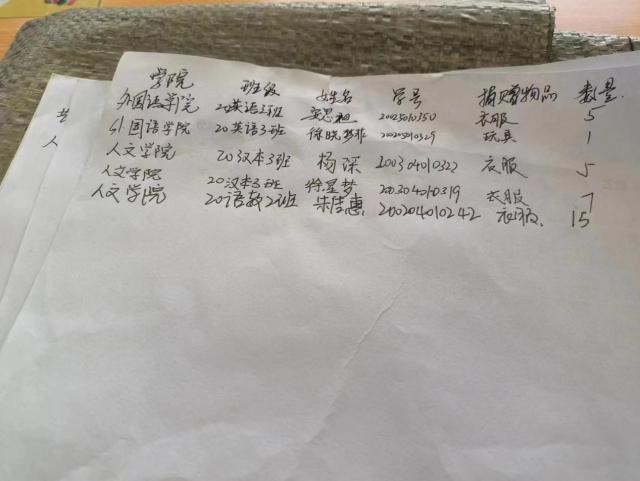 学院 班级 姓名 学号 捐赠物品 数量
外国语学院 20英语3班 衣服 5
外国语学院 20英语3班 徐晓梦菲 玩具 1
人文学院 20汉本3班 杨深 200304010322 衣服 5
人文学院 20汉本3班 徐星梦 200304010319 衣服 7
人文学院 20语教2班 朱佳惠 200204010242 衣服 15
人